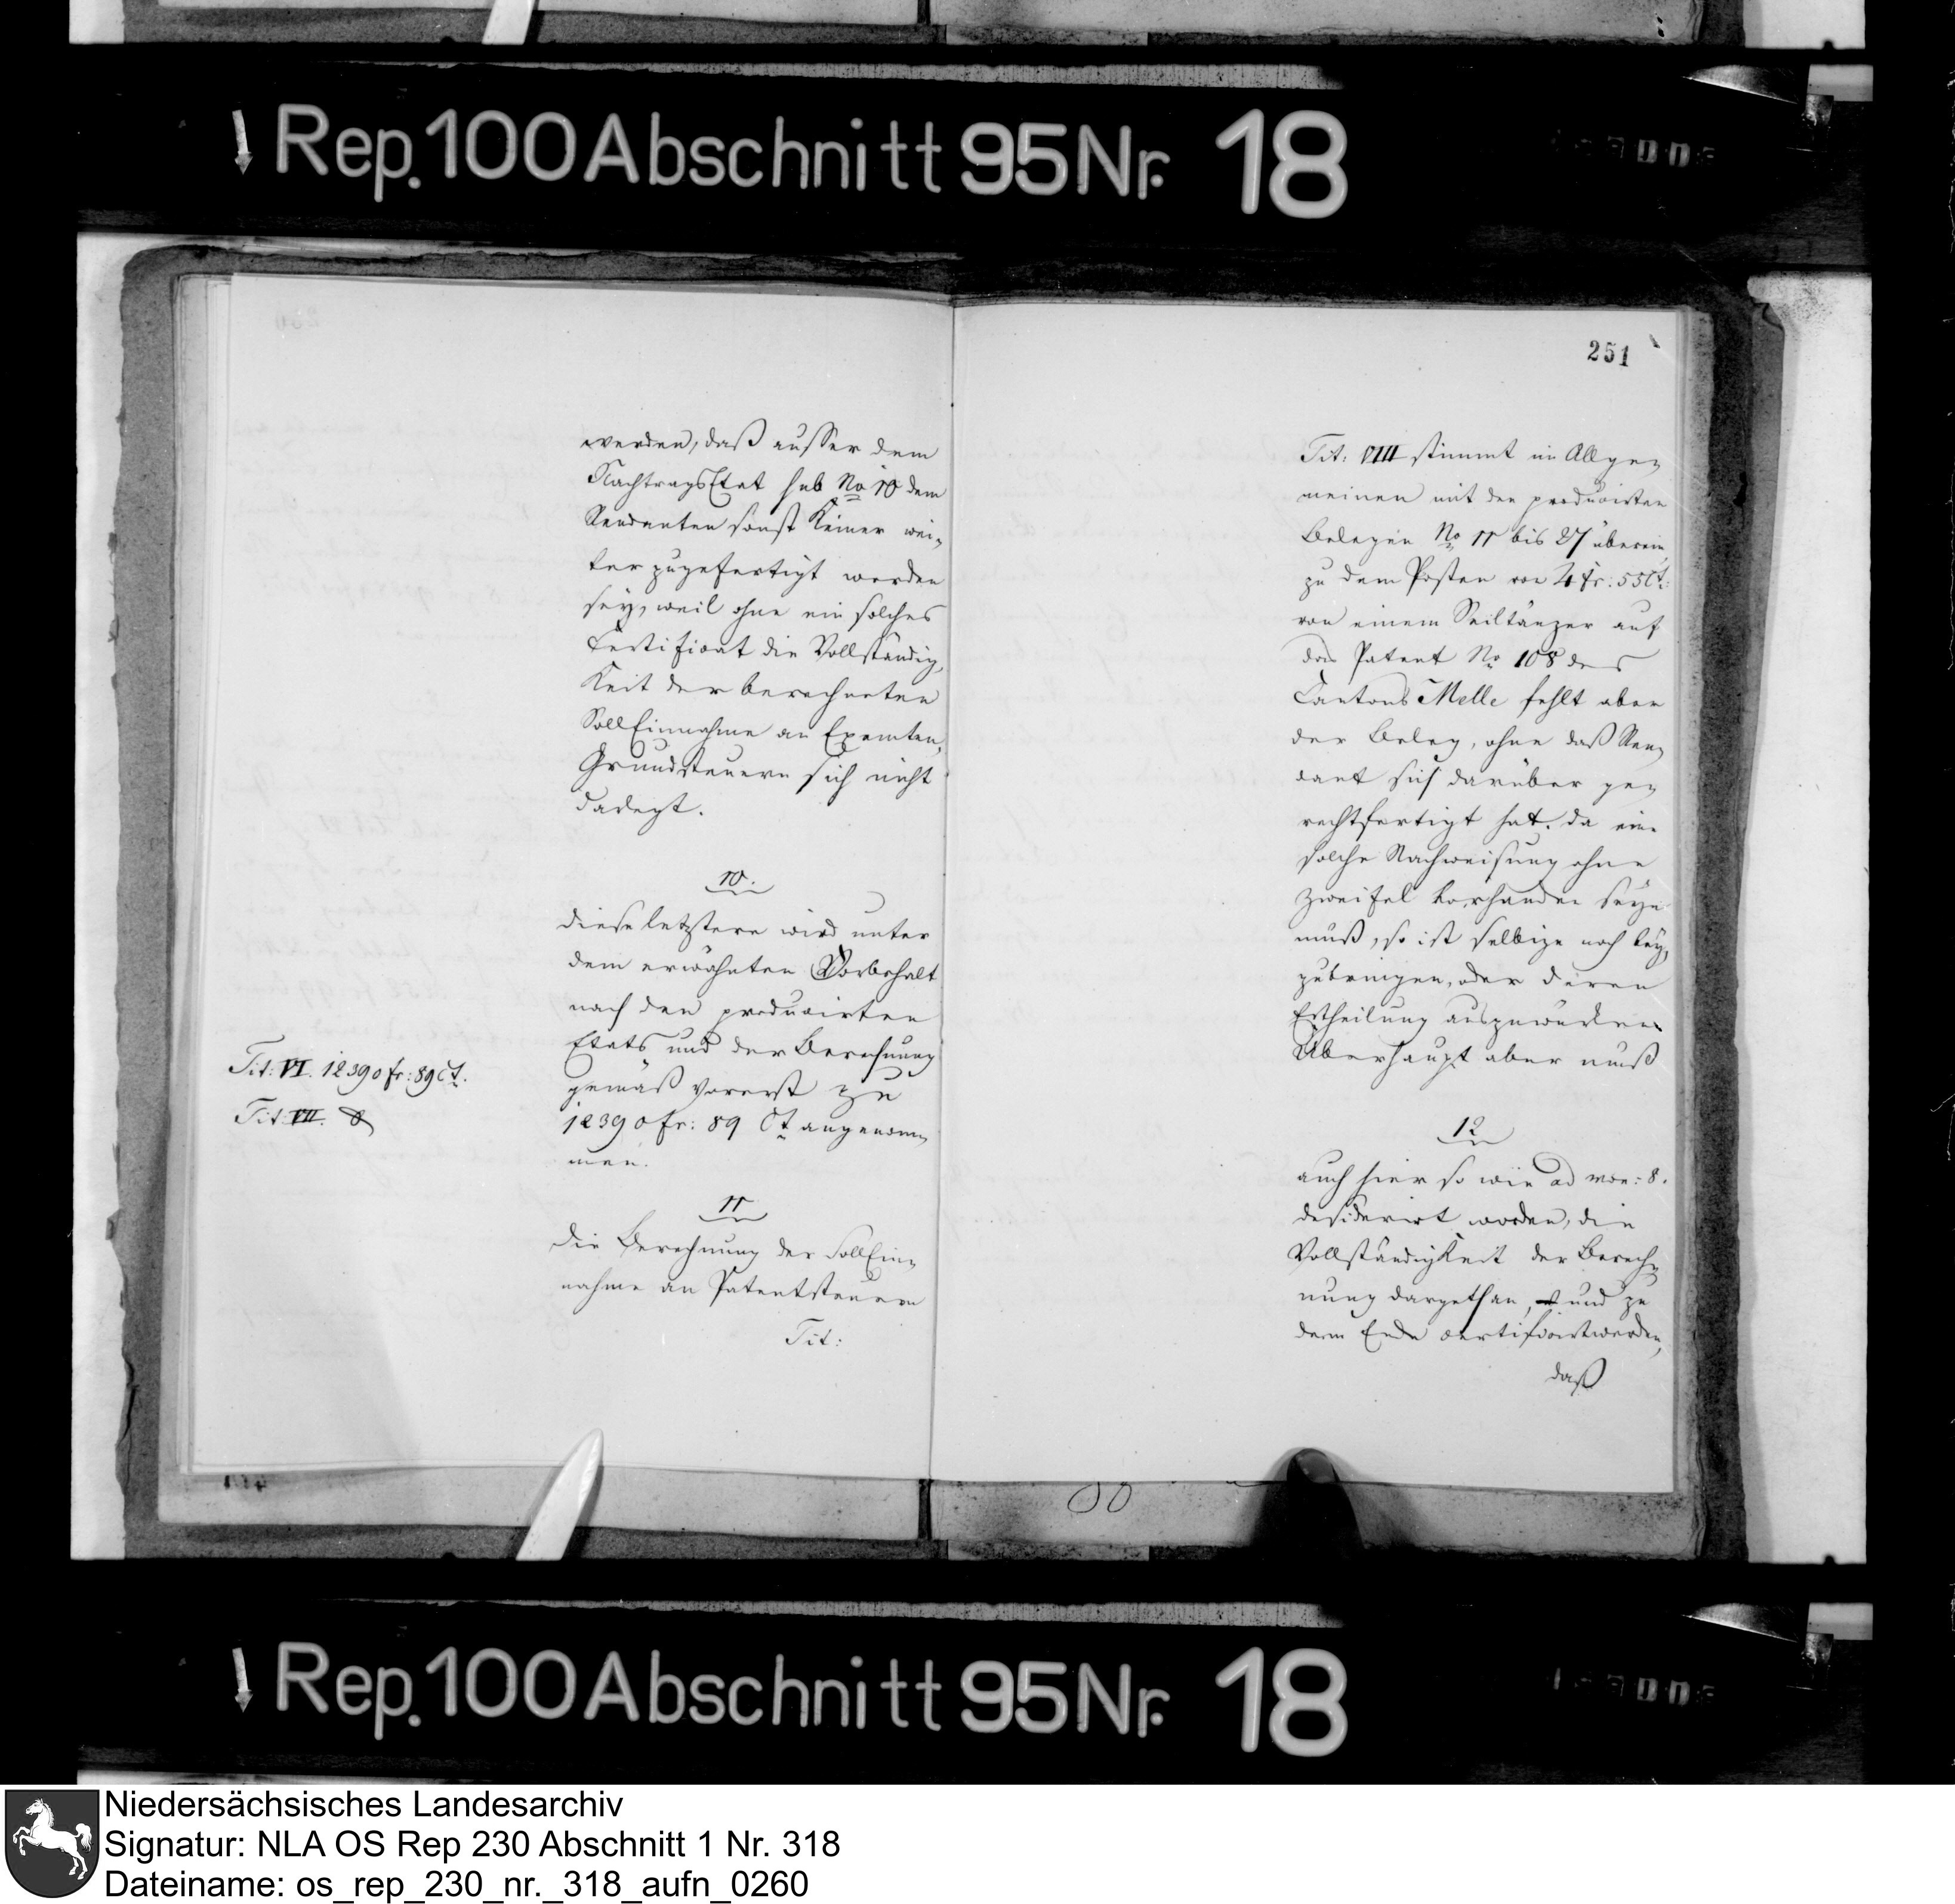 Rep. 100 Abschnitt 95 Nr. 18
werden, daß ausser dem
NachtragsEtat sub No 10 dem
Rendanten sonst Keiner wei-
ter zugefertigt worden
sey, weil ohne ein solches
Certificat die Vollständig-
Keit der berechneten
SollEinnahme an Exemten-
Grundsteuern sich nicht
dadegt.
10.
diese letztere wird unter
dem erwähnten Vorbehalt
nach den producirten
Etats und der Berechnung
gemäß vorerst zu
12390 fr: 89 Ct angenom-
men.
Tit: VI. 12390 fr: 89 Ct.
Tit: VII. 0
11
Die Berechnung der SollEin-
nahme an Patentsteuern
Tit:
251
Tit: VIII stimmt im Allge-
meinen mit den producirten
Belegen No 11 bis 27 überein,
zu dem Posten von 4 fr: 55 Ct:
von einem Seiltänzer auf
das Patent No 108 des
Cantons Melle fehlt aber
der Beleg, ohne daß Ren-
dant sich darüber ge-
rechtfertigt hat. da eine
solche Nachweisung ohne
Zweifel vorhanden seyn
muß, so ist selbige noch bey-
zubringen, oder deren
Ertheilung auszuwürken
Überhaupt aber muß
12
auch hier so wie ad mon: 8.
desiderirt worden, die
Vollständigkeit der Berech-
nung dargethan, und zu
dem Ende certificirt werden,
daß
Rep. 100 Abschnitt 95 Nr. 18
Niedersächsisches Landesarchiv
Signatur: NLA OS Rep 230 Abschnitt 1 Nr. 318
Dateiname: os_rep_230_nr._318_aufn_0260